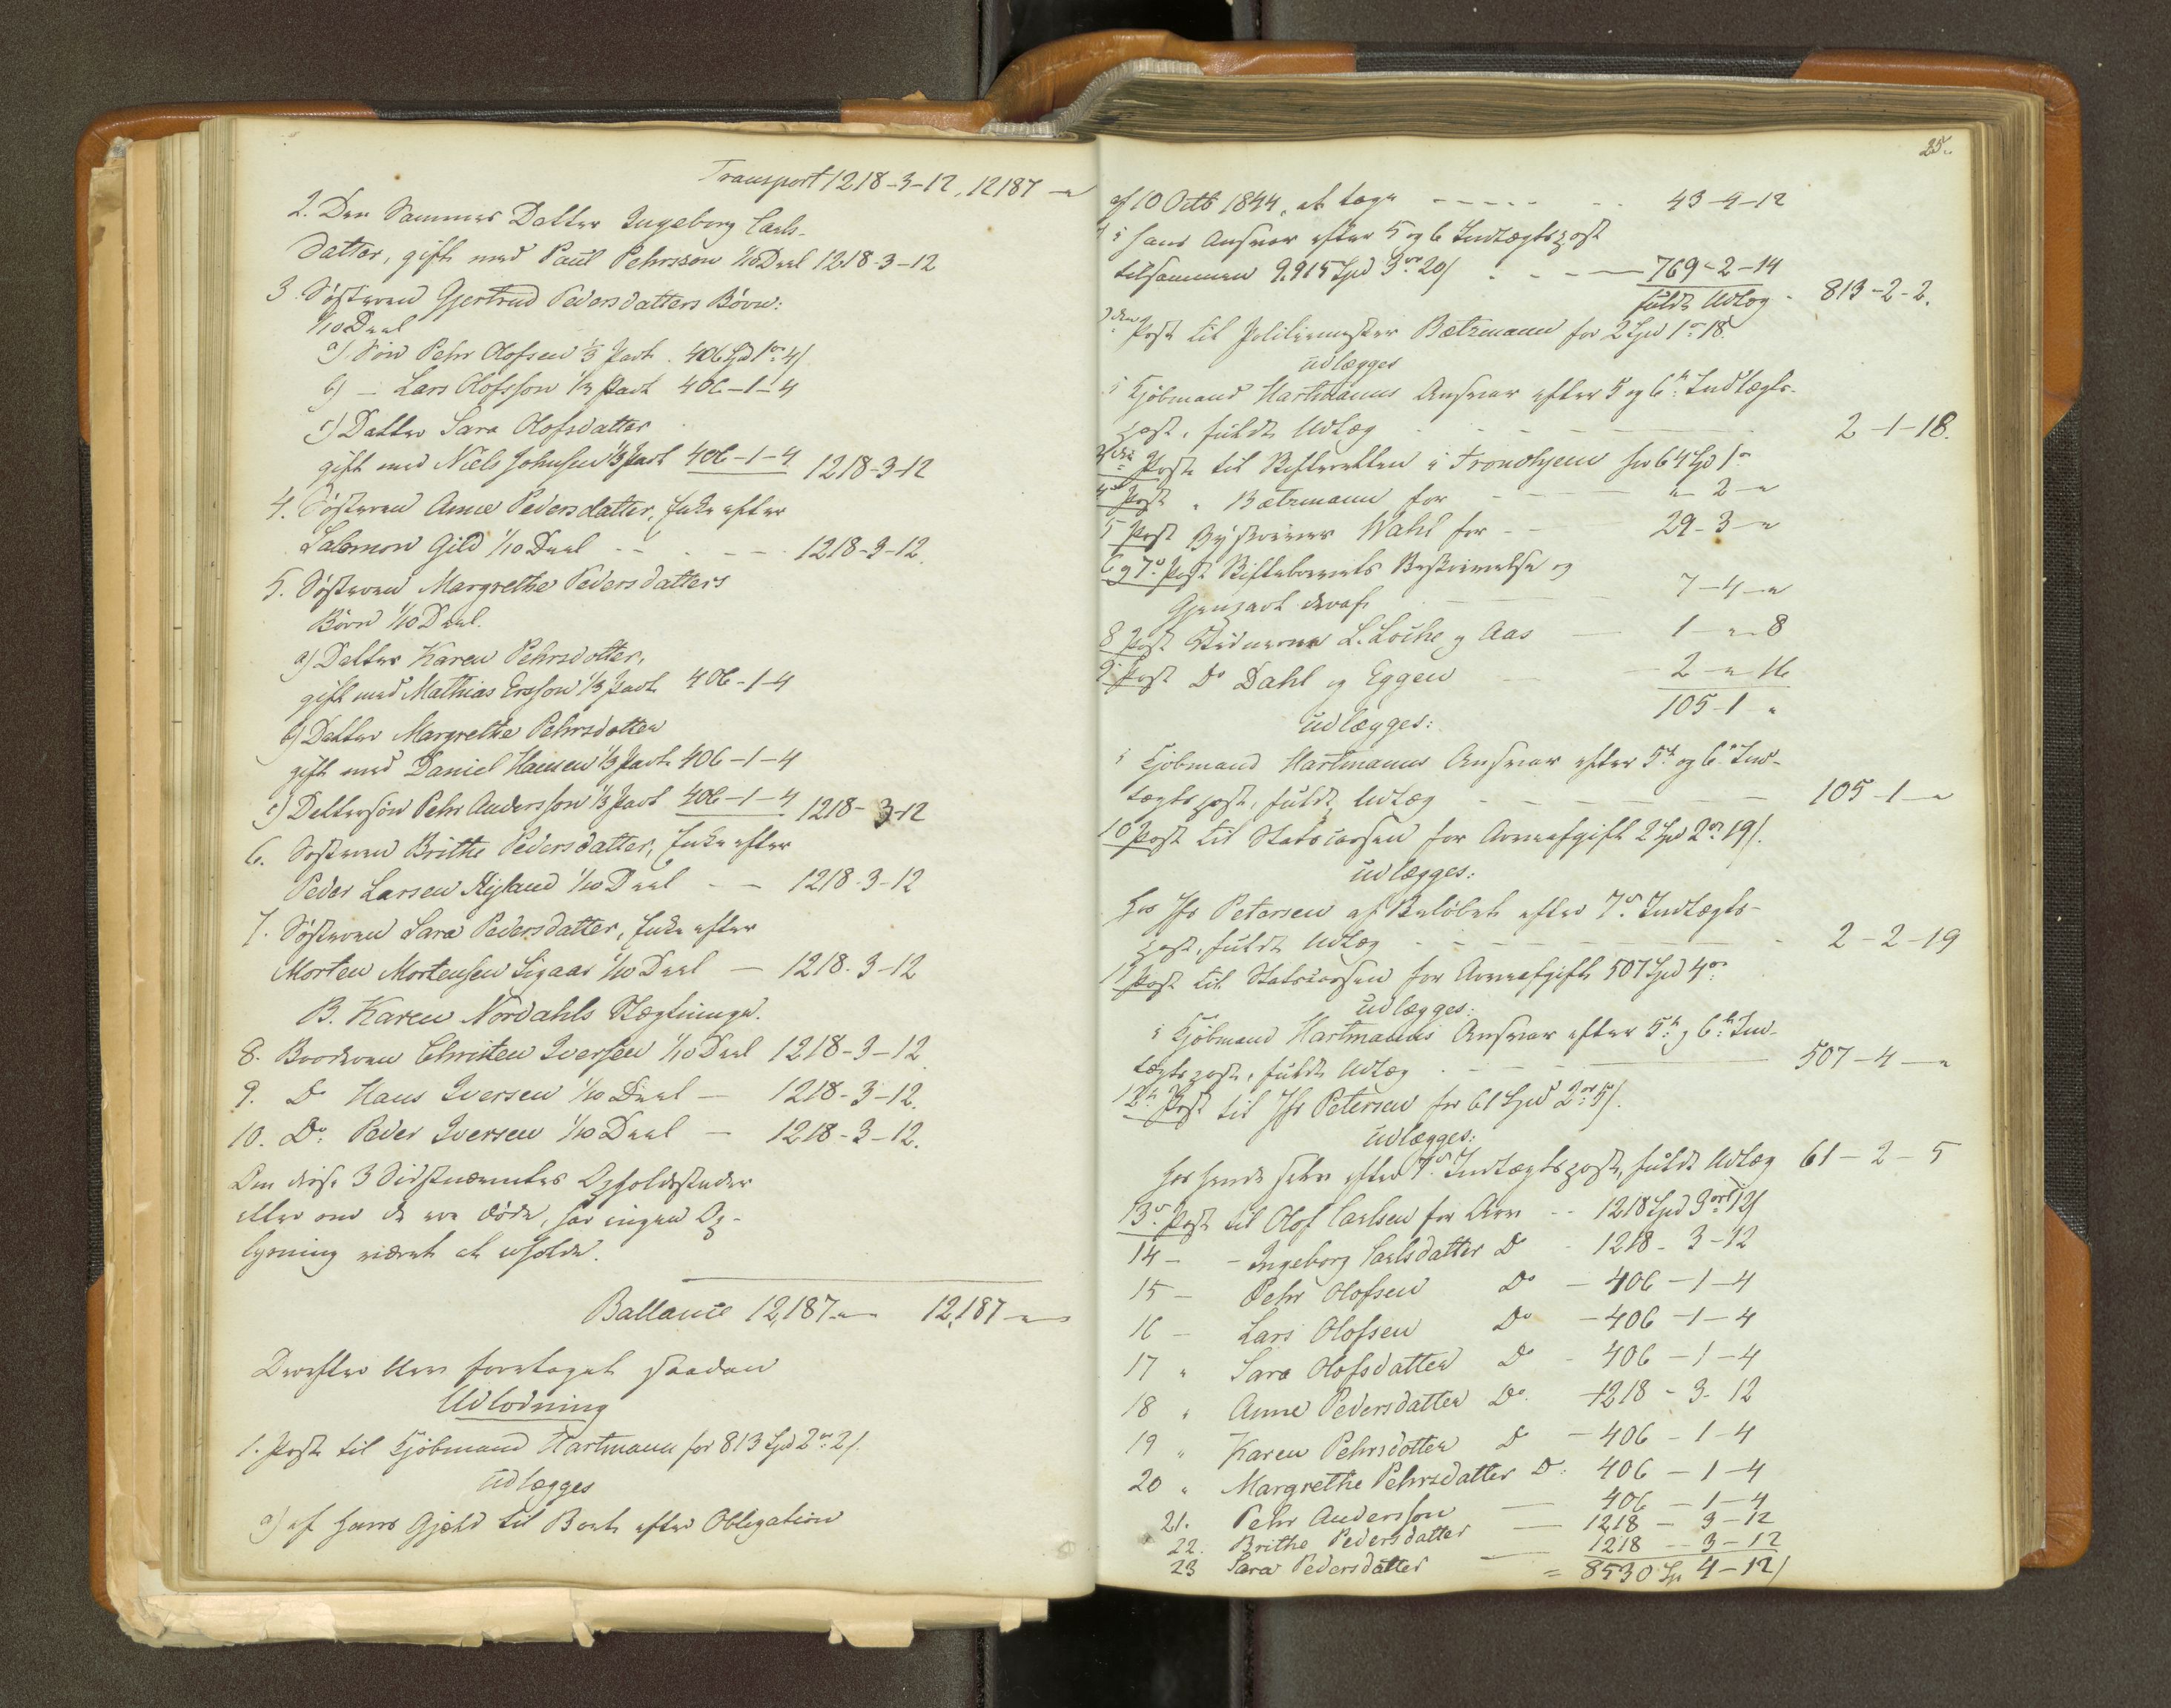 Transport 1218-3-12, 12187 - "
2. Den Sammes Datter Ingeborg Carls-
datter, gift med Paul Pehrsson 1/10 Deel 1218-3-12
3. Søsteren Gjertrud Pedersdatters Børn:
1/10 Deel
a) Søn Pehr Olofsen 1/3 Part. 406 Spd 1 ort 4 s
b) — Lars Olofsson 1/3 Part 406-1-4
c) Datter Sara Olofsdatter
gift med Niels Johnsen 1/3 Part 406-1-4 1218-3-12
4. Søsteren Anne Pedersdatter, Enke efter
Salomon Gild 1/10 Deel - - - - 1218-3-12.
5. Søsteren Margrethe Pedersdatters
Børn 1/10 Deel.
a) Datter Karen Pehrsdotter,
gift med Mathias Ersson 1/3 Part 406-1-4
b) Datter Margrethe Pehrsdotter
gift med Daniel Hansen 1/3 Part 406-1-4
c) Dattersøn Pehr Andersson 1/3 Part 406-1-4 1218-3-12
6. Søsteren Brithe Pedersdatter, Enke efter
Peder Larsen 1/10 Deel - - 1218-3-12
7. Søsteren Sara Pedersdatter, Enke efter
Morten Mortensen Ligaas 1/10 Deel — 1218-3-12
B. Karen Nordahls Slægtninge.
8. Broderen Christen Iversen 1/10 Deel 1218-3-12.
9. Do Hans Iversen 1/10 Deel — 1218-3-12.
10. Do: Peder Iversen 1/10 Deel — 1218-3-12.
Om disse 3 Sidstnævntes Opholdssteder
eller om de ere døde, har ingen Op-
lysning været at erholde.
Ballance 12,187 - " 12,187 - "
Derefter blev foretaget saadan
Udlodning
1. Post til Kjøbmand Hartmann for 813 Spd 2 ort 2 s.
udlægges
a) af hans Gjæld til Boet efter Obligation
25.
af 10 Octb 1844, at tage - - - - - 43-4-12
i hans Ansvar efter 5 og 6 Indtægtspost
tilsammen 9.915 Spd 3 ort 20 s - - - 769-2-14
fuldt Udlæg - 813-2-2.
2den Post til Politiemester Bætzmann for 2 Spd 1 ort 18.
udlægges
i Kjøbmand Hartmanns Ansvar efter 5 og 6te Indtægts-
post, fuldt Udlæg - - - - 2-1-18.
3die Post til Skifteretten i Trondhjem for 64 Spd 1 ort
4de Post " Bætzmann for - - - " - 2 - "
5 Post Byskriver Wahl for - - 29-3-"
6 og 7de Post Skiftebrevets Beskrivelse og
Gjenpart deraf — 7-4-"
8 Post Vidnerne L. Loche og Aas — 1-"-8
9de Post Do Dahl og Eggen — 2-"-16
105-1 "
udlægges:
i Kjøbmand Hartmanns Ansvar efter 5te og 6te Ind-
tægtspost, fuldt Udlæg - - - - 105-1-"
10 Post til Statscassen for Arveafgift 2 Spd 2 ort 19 s.
udlægges:
hos Jfr Petersen af Beløbet efter 7de Indtægts-
post, fuldt Udlæg - - - - 2-2-19
11 Post til Statscassen for Arveafgift 507 Spd 4 ort
udlægges:
i Kjøbmand Hartmanns Ansvar efter 5te og 6te Ind-
tægtspost, fuldt Udlæg - - - - 507-4-"
12te Post til Jfr Petersen for 61 Spd 2 ort 5 s.
udlægges:
hos hende selv efter 7de Indtægtspost, fuldt Udlæg 61-2-5
13de Post til Olof Carlsen for Arv - - 1218 Spd 3 ort 12 s
14 - - Ingeborg Carlsdatter Do - 1218-3-12
15 - Pehr Olofsen Do - 406-1-4
16 - Lars Olofsen Do - 406-1-4
17 " Sara Olofsdatter Do - 406-1-4
18 " Anne Pedersdatter Do. - 1218-3-12
19 " Karen Pehrsdotter Do - 406-1-4
20 " Margrethe Pehrsdatter Do: 406-1-4
21. Pehr Andersson — 406-1-4
22. Brithe Pedersdatter — 1218-3-12
23 Sara Pedersdatter — 1218-3-12
= 8530 Sp 4-12 s